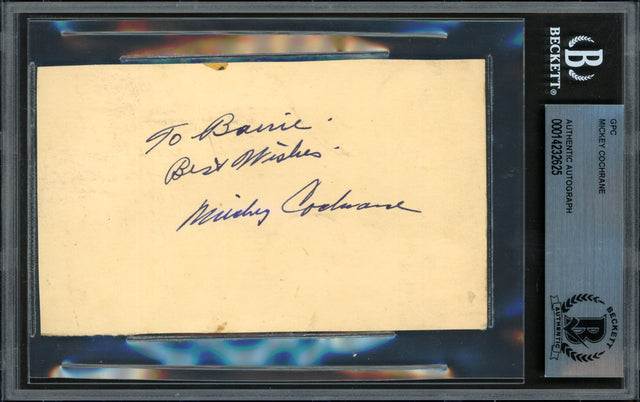 To Barrie.
Best Wishes.
Mickey Cochrane
B
BECKETT®
GPC
MICKEY COCHRANE
AUTHENTIC AUTOGRAPH
00014232625
BECKETT
B
AUTHENTIC